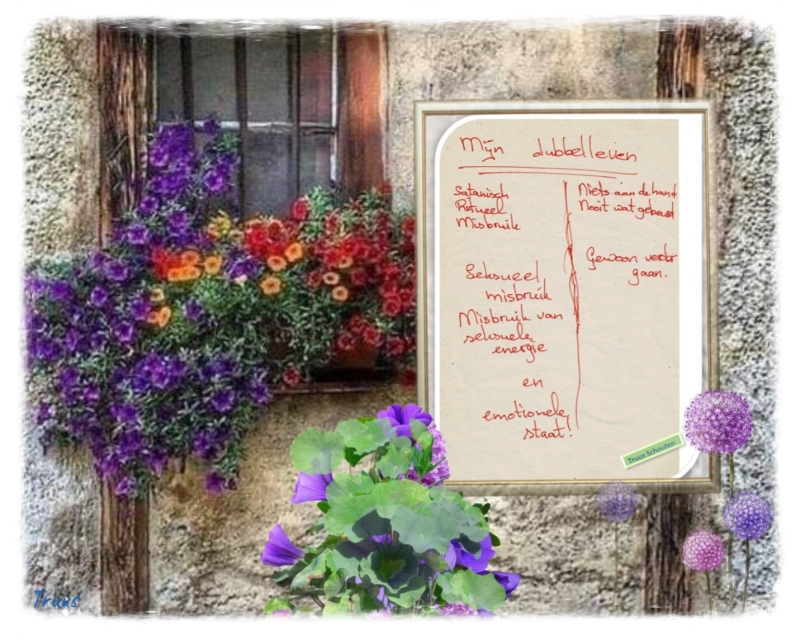 Mijn dubbelleven
Satanisch
Ritueel
Misbruik
Seksueel
misbruik
Misbruik van
seksuele
energie
en
emotionele
staat!
Niets aan de hand
Nooit wat gebeurd
Gewoon verder
gaan.
Truus Schouten
Truus